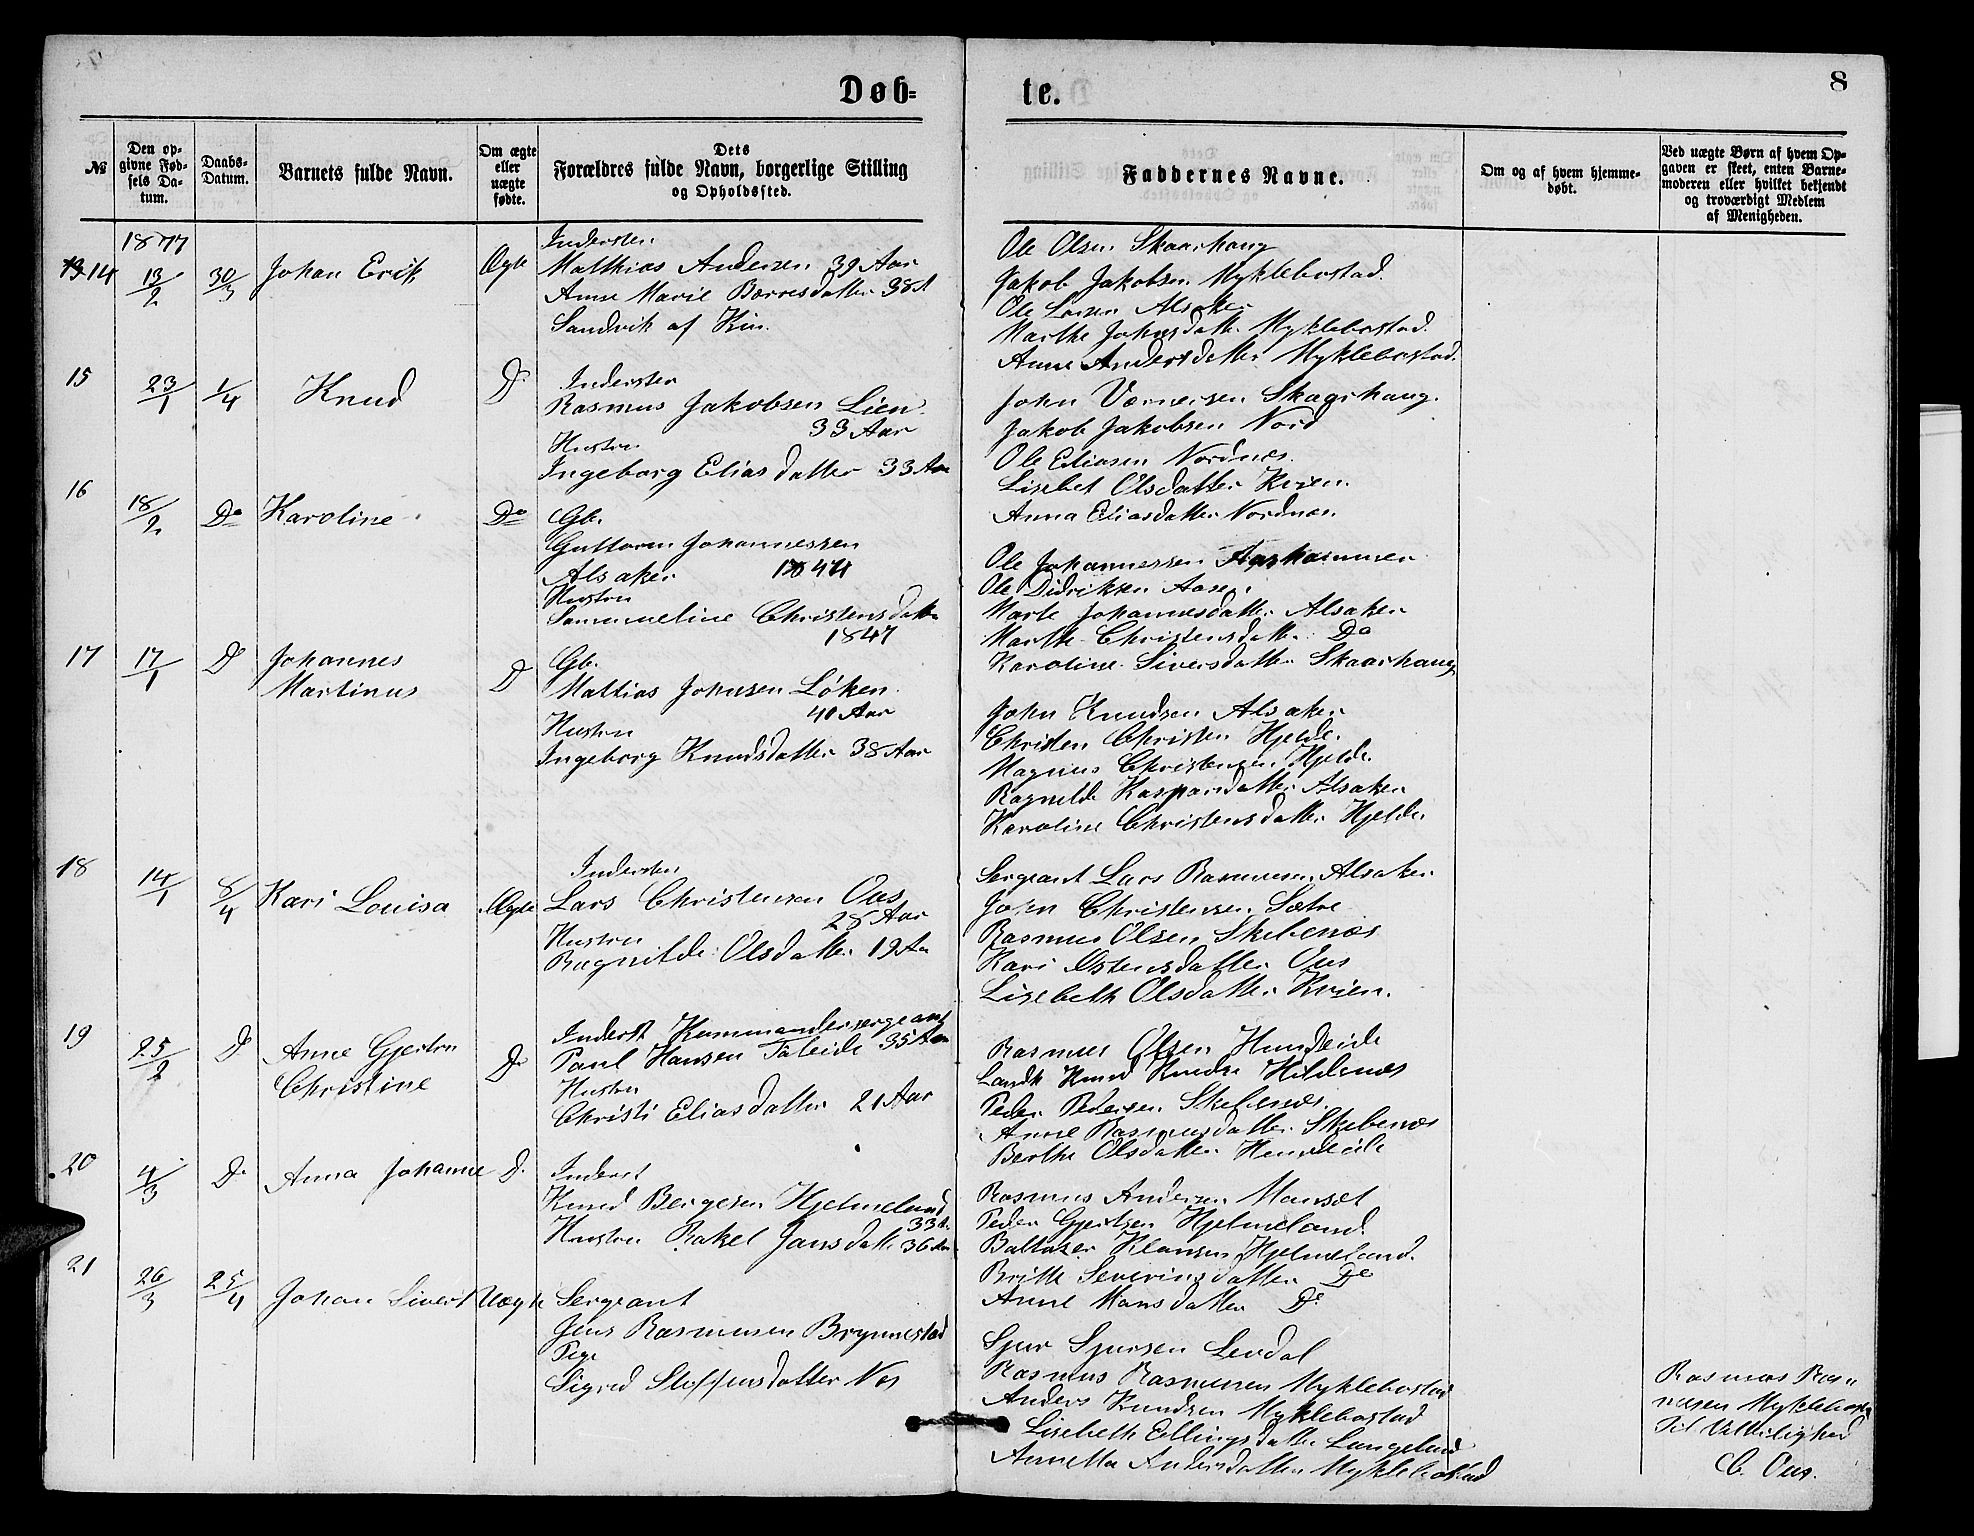 Døb-
te.
8
№
Den op-
givne Fød-
sels Da-
tum.
Daabs-
Datum.
Barnets fulde Navn.
Om ægte
eller
uægte
fødte.
Dets
Forældres fulde Navn, borgerlige Stilling
og Opholdssted.
Faddernes Navne.
Om og af hvem hjemme-
døbt.
Ved uægte Børn af hvem Op-
gaven er skeet, enten Barne-
moderen eller hvilket bekjendt
og troværdigt Medlem
af Menigheden.
1877
14
13/2
30/3
Johan Erik
Ægte
Indersten
Matthias Andersen 39 Aar
Anne Marie Børresdatter 38 A
Sandvik af Kin.
Ole Olsen Skaarhaug
Jakob Jakobsen Myklebostad.
Ole Larsen Alsaker
Marthe Johnsdatter Myklebostad.
Anne Andersdatter Myklebostad.
15
23/1
1/4
Knud
Do
Indersten
Rasmus Jakobsen Lien.
33 Aar
Hustru
Ingeborg Eliasdatter 33 Aar
John Værnersen Skaarhaug.
Jakob Jakobsen Nord
Ole Eliasen Nordnes.
Lisebet Olsdatter Kvien.
Anna Eliasdatter Nordnes.
16
18/2
Do
Karoline
Do
Gb.
Guttorm Johannessen
Alsaker 1844
Hustru
Sammeline Christensdatter
1847
Ole Johannessen Aaskammen
Ole Didriksen Aasen
Marte Johannesdatter Alsaker
Marthe Christensdatter Do
Karoline Siversdatter Skaarhaug
17
17/1
Do
Johannes
Martinus
Do
Gb.
Mattias Johnsen Løken.
40 Aar
Hustru
Ingeborg Knudsdatter 38 Aar
John Knudsen Alsaker
Christen Christen Hjelde.
Magnus Christensen Hjelde.
Ragnilde Kaspersdatter Alsaker
Karoline Christensdatter Hjelde.
18
14/1
8/4
Kari Lovisa
Ægte
Indersten
Lars Christensen Ous
28 Aar
Hustru
Ragnilde Olsdatter 19 Aar
Sergeant Lars Rasmusen Alsaker
John Christensen Sætre
Rasmus Olsen Skebenes
Kari Østensdatter Ous
Lisebeth Olsdatter Kvien.
19
25/2
Do
Anne Gjertru
Christine
Do
Inderst Kommandersergeant
Paul Hansen Taleide 35 Aar
Hustru
Christi Eliasdatter 21 Aar
Rasmus Olsen Hundeide
Landh Knud Knudsn Hildenes
Peder Pedersen Skebenes.
Anne Rasmusdatter Skebenes
Berthe Olsdatter Hundeide
20
4/3
Do
Anna Johanne
Do
Inderst
Knud Bergesen Hjelmeland
33 A.
Hustru Rakel Jansdatter 36 Aar
Rasmus Andersen Mansæt
Peder Gjertsen Hjelmeland.
Baltaser Klausen Hjelmeland.
Britte Severinsdatter Do
Anne Hansdatter Do
21
26/3
25/4
Johan Sivert
Uægte
Sergeant
Jens Rasmusen Brynnestad
Pige
Sigred Steffensdatter Nes
Sjur Sjursen Levdal
Rasmus Rasmusen Myklebostad
Anders Knudsen Myklebostad
Lisebeth Ellingsdatter Langeland
Annette Andersdatter Myklebostad
Rasmus Ras-
musen Myklebostad
Til Vitterlighed
C. Ous.